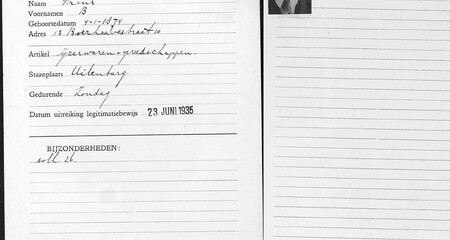 Naam Prins
Voornamen B
Geboortedatum 4-1-1874
Adres 13 Boerhaavestraat 10
Artikel ijzerwaren + gereedschappen.
Staanplaats Uilenburg
Gedurende Zondag
Datum uitreiking legitimatiebewijs 23 JUNI 1935
BIJZONDERHEDEN:
soll. 26.